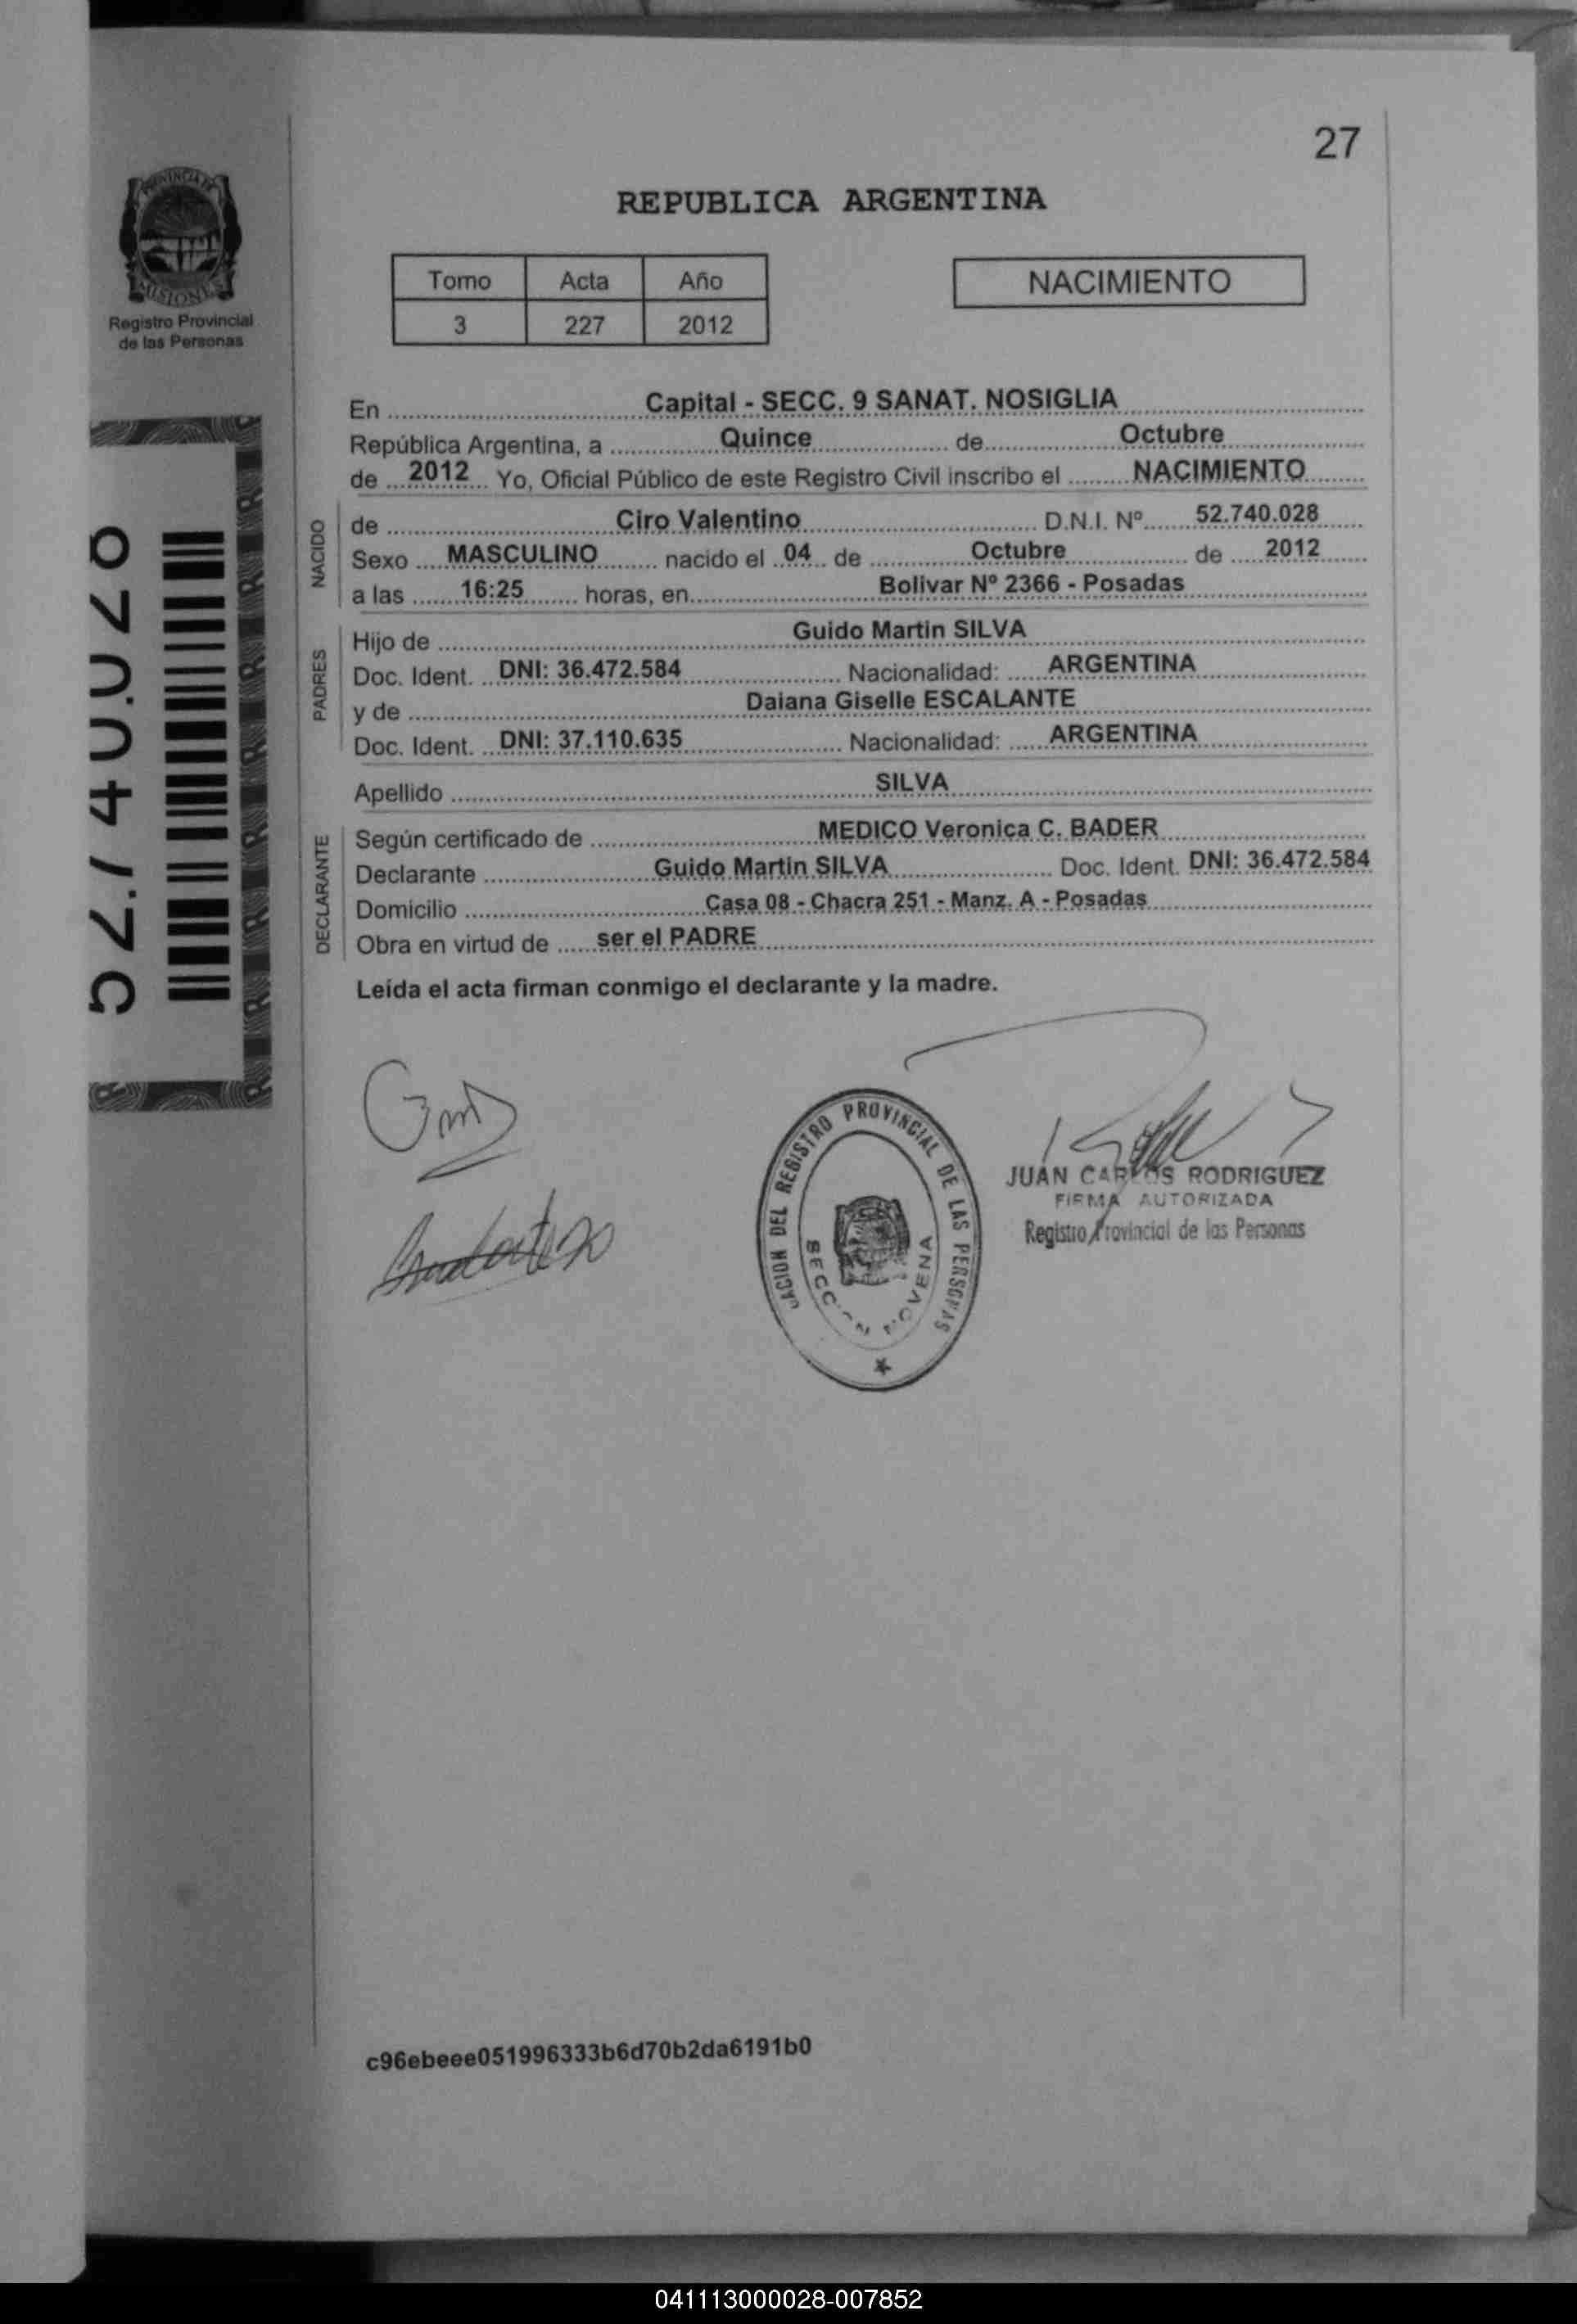 27
PROVINCIA DE
MISIONES
Registro Provincial
de las Personas
REPUBLICA ARGENTINA
Tomo Acta Año
3 227 2012
NACIMIENTO
En Capital - SECC. 9 SANAT. NOSIGLIA
República Argentina, a Quince de Octubre
de 2012 Yo, Oficial Público de este Registro Civil inscribo el NACIMIENTO
NACIDO
de Ciro Valentino D.N.I. Nº 52.740.028
Sexo MASCULINO nacido el 04 de Octubre de 2012
a las 16:25 horas, en Bolivar Nº 2366 - Posadas
PADRES
Hijo de Guido Martin SILVA
Doc. Ident. DNI: 36.472.584 Nacionalidad: ARGENTINA
y de Daiana Giselle ESCALANTE
Doc. Ident. DNI: 37.110.635 Nacionalidad: ARGENTINA
Apellido SILVA
DECLARANTE
Según certificado de MEDICO Veronica C. BADER
Declarante Guido Martin SILVA Doc. Ident. DNI: 36.472.584
Domicilio Casa 08 - Chacra 251 - Manz. A - Posadas
Obra en virtud de ser el PADRE
Leída el acta firman conmigo el declarante y la madre.
52.740.028
DEL REGISTRO PROVINCIAL DE LAS PERSONAS
SECCION NOVENA
JUAN CARLOS RODRIGUEZ
FIRMA AUTORIZADA
Registro Provincial de las Personas
c96ebeee051996333b6d70b2da6191b0
041113000028-007852